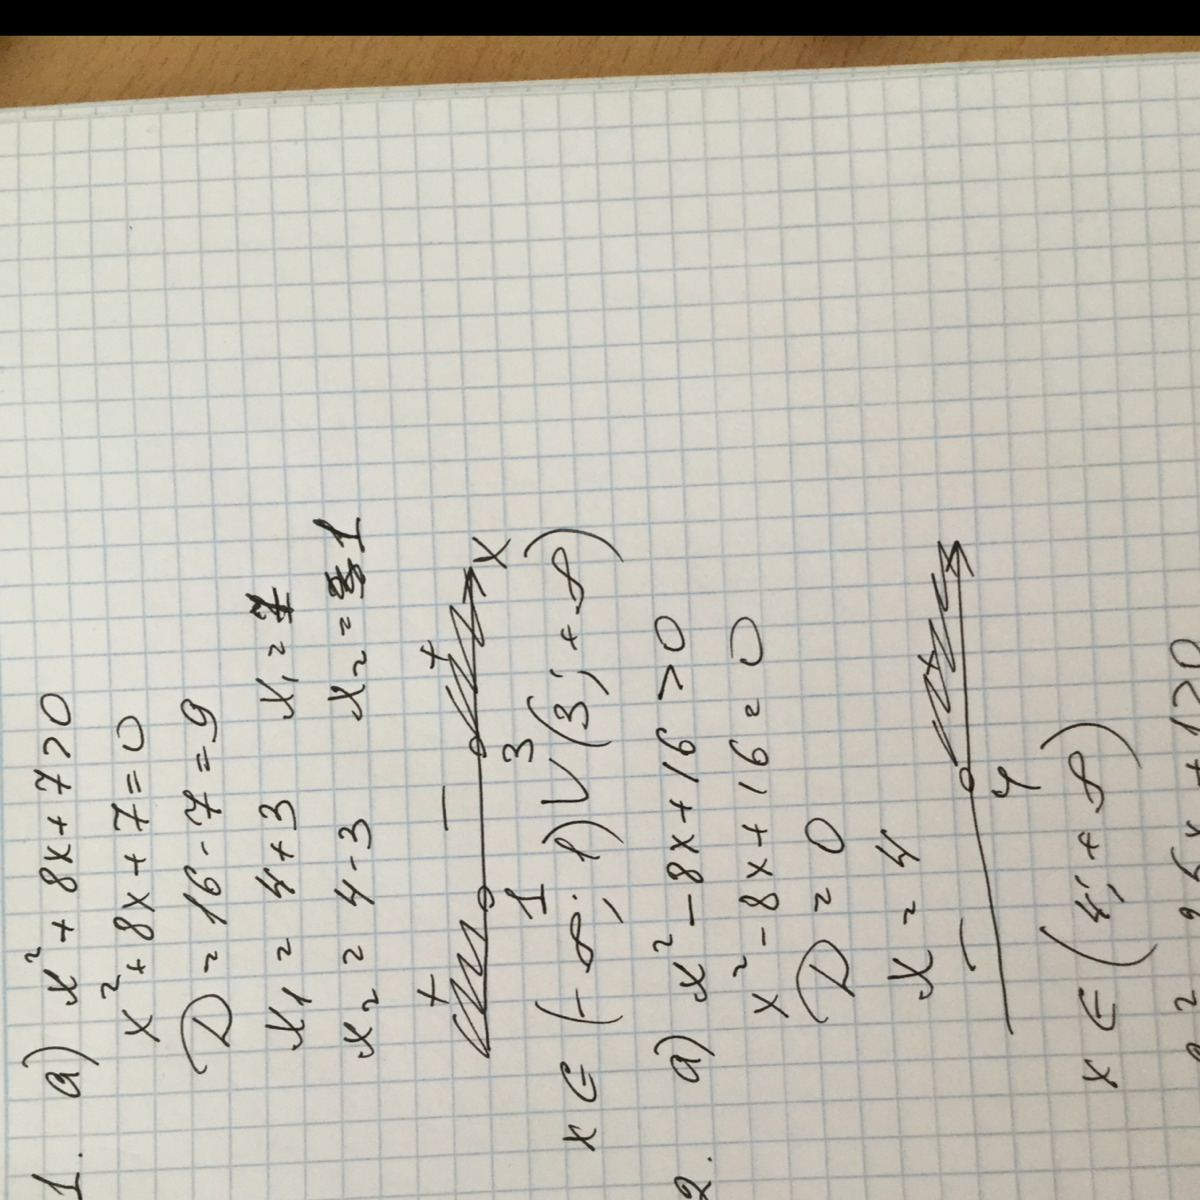 1. a) x² + 8x + 7 > 0
x² + 8x + 7 = 0
D = 16 - 7 = 9
x₁ = 4 + 3 x₁ = 7
x₂ = 4 - 3 x₂ = 1
+ − + x
1 3
x ∈ (-∞; 1) ∪ (3; +∞)
2. a) x² - 8x + 16 > 0
x² - 8x + 16 = 0
D = 0
x = 4
− +
4
x ∈ (4; +∞)